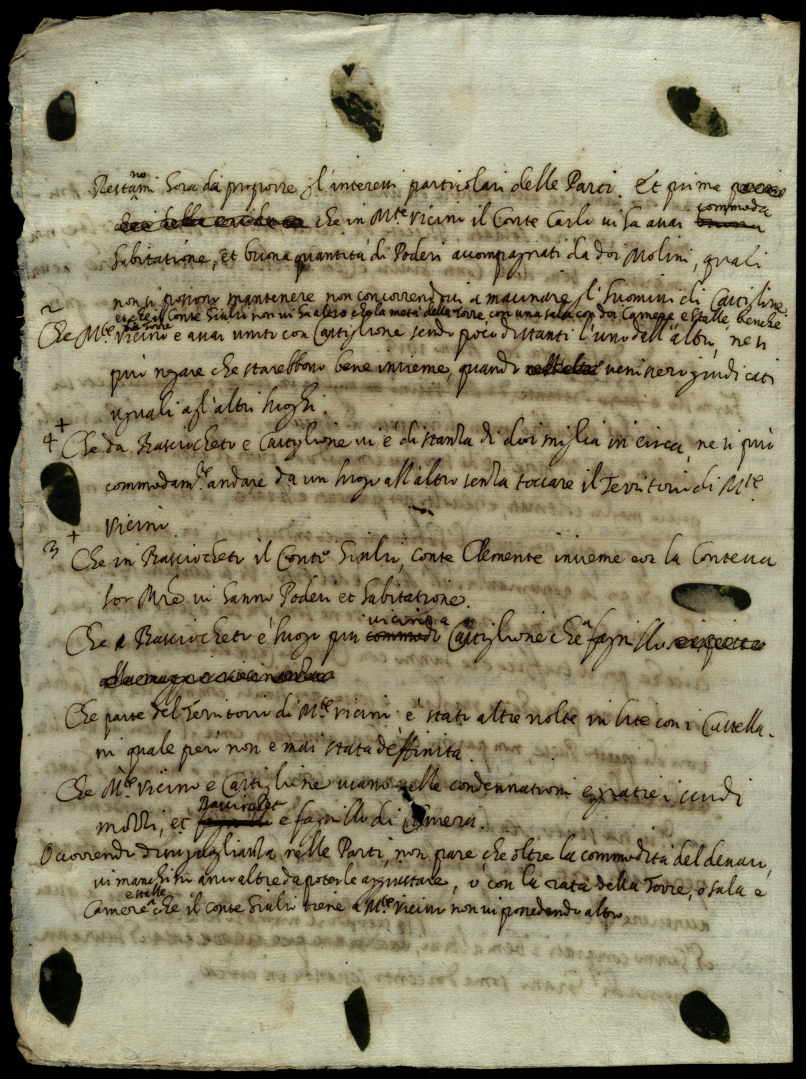 Restanno hora da proporre gl'interessi particolari delle Parti. Et prima
che in M.te vicino il Conte Carlo vi ha assai commoda
habitatione, et buona quantità di Poderi accompagnati da doi Molini, quali
non si possono mantenere non concorrendovi a macinare gl'huomini di Castiglione
e che il Conte Giulio non vi ha altro che la metà della Torre, con una sala con doi Camere e stalle benche
la Torre
2 Che M.te vicino e assai unito con Castiglione sendo poco distanti l'uno dall'altro, ne si
può negare che starebbono bene insieme, quando venissero giudicati
uguali agl'altri luoghi.
4 + Che da Rasciocheto e Castiglione vi è distanza di doi miglia in circa, ne si può
commodam.te andare da un luogo all'altro senza toccare il Territorio di M.te
vicino
3 + Che in Rasciocheto il Conte Giulio, conte Clemente insieme con la Contessa
lor M.re vi hanno Poderi et habitatione.
Che Rasciocheto è luogo più vicino a Castiglione che a fagnillo
Che parte del Territorio di M.te vicino è stato altre volte in lite con i Castella-
ni quale però non e mai stata deffinita.
Che M.te vicino e Castiglione usano nelle condennationi e gratie i
mozzi, et Rasciochet e fagnillo di Camera.
Occorrendo disuguaglianza nelle Parti, non pare che oltre la commodità del denaro,
vi manchino anco altre da poterle aggiustare, o con la rata della Torre, o sala e
Camere e stalle che il conte Giulio tiene a M.te vicino non vi possedendo altro